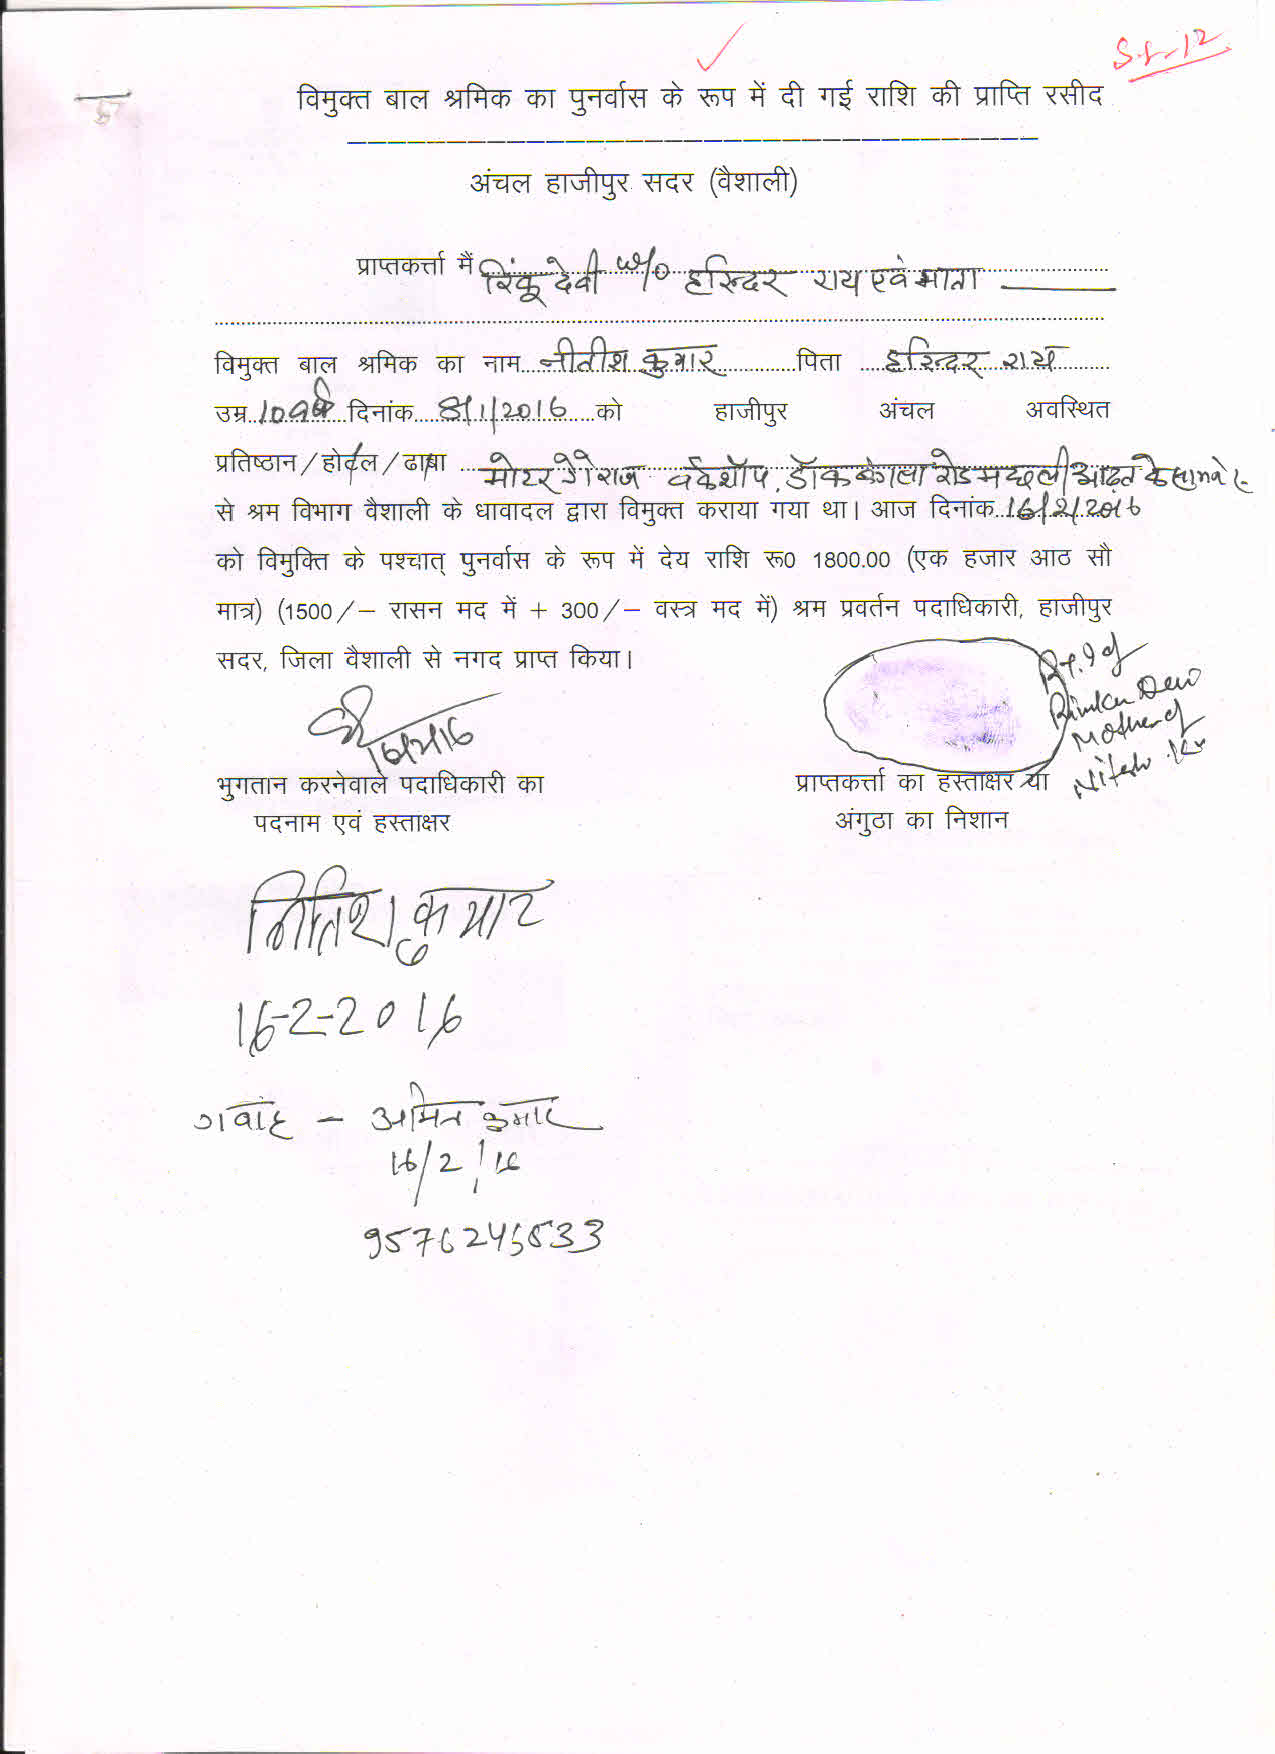 Sl-12
विमुक्त बाल श्रमिक का पुनर्वास के रूप में दी गई राशि की प्राप्ति रसीद
अंचल हाजीपुर सदर (वैशाली)
प्राप्तकर्त्ता मैं रिंकू देवी w/o हरिन्दर राय एवं माता
विमुक्त बाल श्रमिक का नाम नीतीश कुमार पिता हरिन्दर राय
उम्र 10 वर्ष दिनांक 8/1/2016 को हाजीपुर अंचल अवस्थित
प्रतिष्ठान/होटल/ढाबा मोटर गैराज वर्कशॉप, डॉक बंगला रोड मछली आढ़त के सामने
से श्रम विभाग वैशाली के धावादल द्वारा विमुक्त कराया गया था। आज दिनांक 16/2/2016
को विमुक्ति के पश्चात् पुनर्वास के रूप में देय राशि रू0 1800.00 (एक हजार आठ सौ
मात्र) (1500/– रासन मद में + 300/– वस्त्र मद में) श्रम प्रवर्तन पदाधिकारी, हाजीपुर
सदर, जिला वैशाली से नगद प्राप्त किया।
R.T.I of
Rinku Devi
Mother of
Nitesh Kr
भुगतान करनेवाले पदाधिकारी का
पदनाम एवं हस्ताक्षर
प्राप्तकर्त्ता का हस्ताक्षर या
अंगुठा का निशान
नितिश कुमार
16-2-2016
गवाह – अमित कुमार
16/2/16